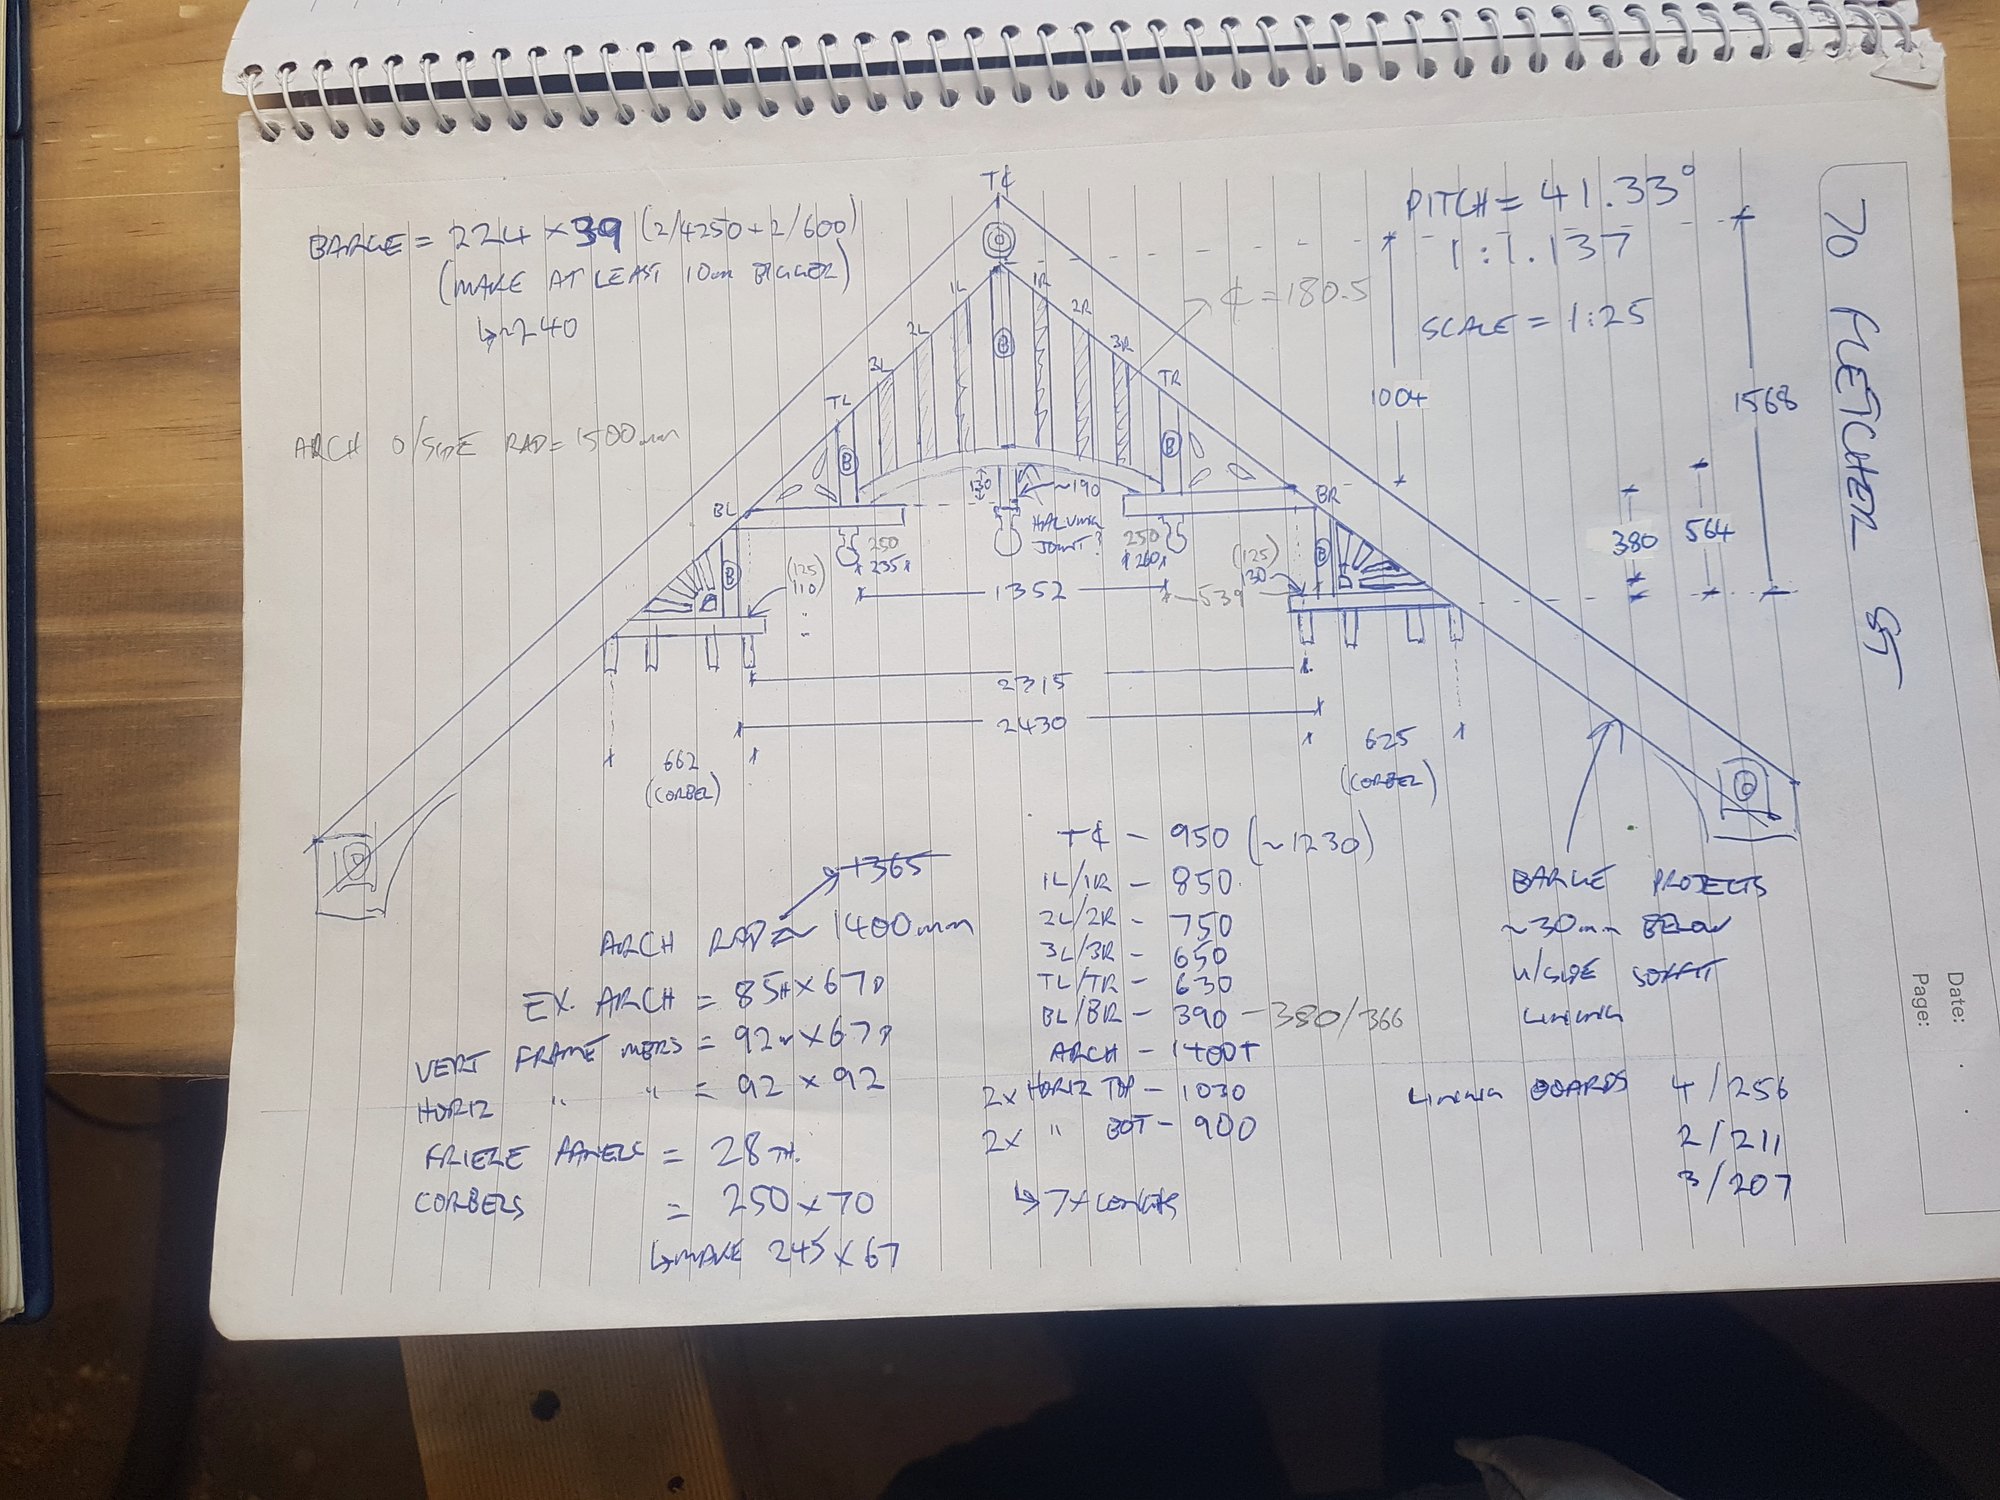 T℄
PITCH = 41.33°
1:1.137
SCALE = 1:25
70 FLETCHER ST
BARGE = 224 × 39 (2/4250 + 2/600)
(MAKE AT LEAST 10mm BIGGER)
↳ ~240
℄ = 180.5
1L
1R
2L
2R
3L
3R
TL
TR
B
B
B
1004
1568
ARCH O/SIDE RAD = 1500mm
130
~190
HALVING
JOINT?
BL
BR
250
235
250
260
380
564
B
B
(125)
110
(125)
130
1352
539
2315
2430
662
(CORBEL)
625
(CORBEL)
1365
ARCH RAD ≈ ~ 1400mm
EX. ARCH = 85H × 67D
VERT FRAME MBRS = 92W × 67D
HORIZ " " = 92 × 92
FRIEZE PANELS = 28 TH.
CORBELS = 250 × 70
↳ MAKE 245 × 67
T℄ - 950 (~1230)
1L/1R - 850
2L/2R - 750
3L/3R - 650
TL/TR - 630
BL/BR - 390 - 380/366
ARCH - 1400+
2x HORIZ TOP - 1030
2x " BOT - 900
↳ 7x LENGTHS
BARGE PROJECTS
~30mm BELOW
U/SIDE SOFFIT
LINING
LINING BOARDS 4/256
2/211
3/207
Date:
Page: